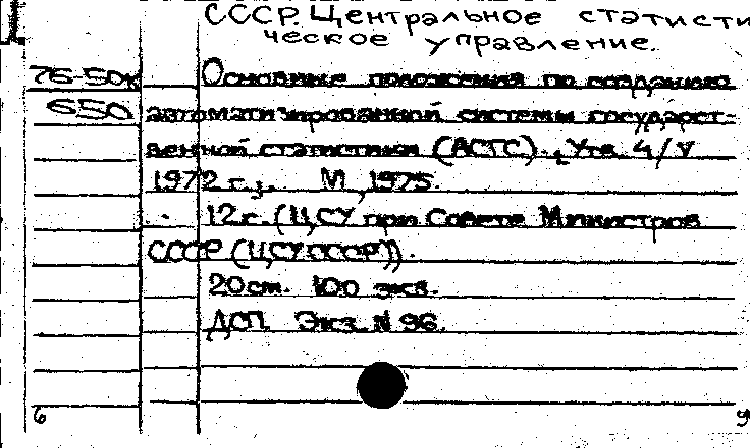 СССР. Центральное статисти
ческое управление.
76-50к Основные положения по созданию
650 автоматизированной системы государст-
венной статистики (АСТС). Утв. 4/V
1972 г. М, 1975.
12с. (ЦСУ при Совете Министров
СССР (ЦСУ СССР)).
20см. 100 экз.
ДСП. Экз. N 96.
6